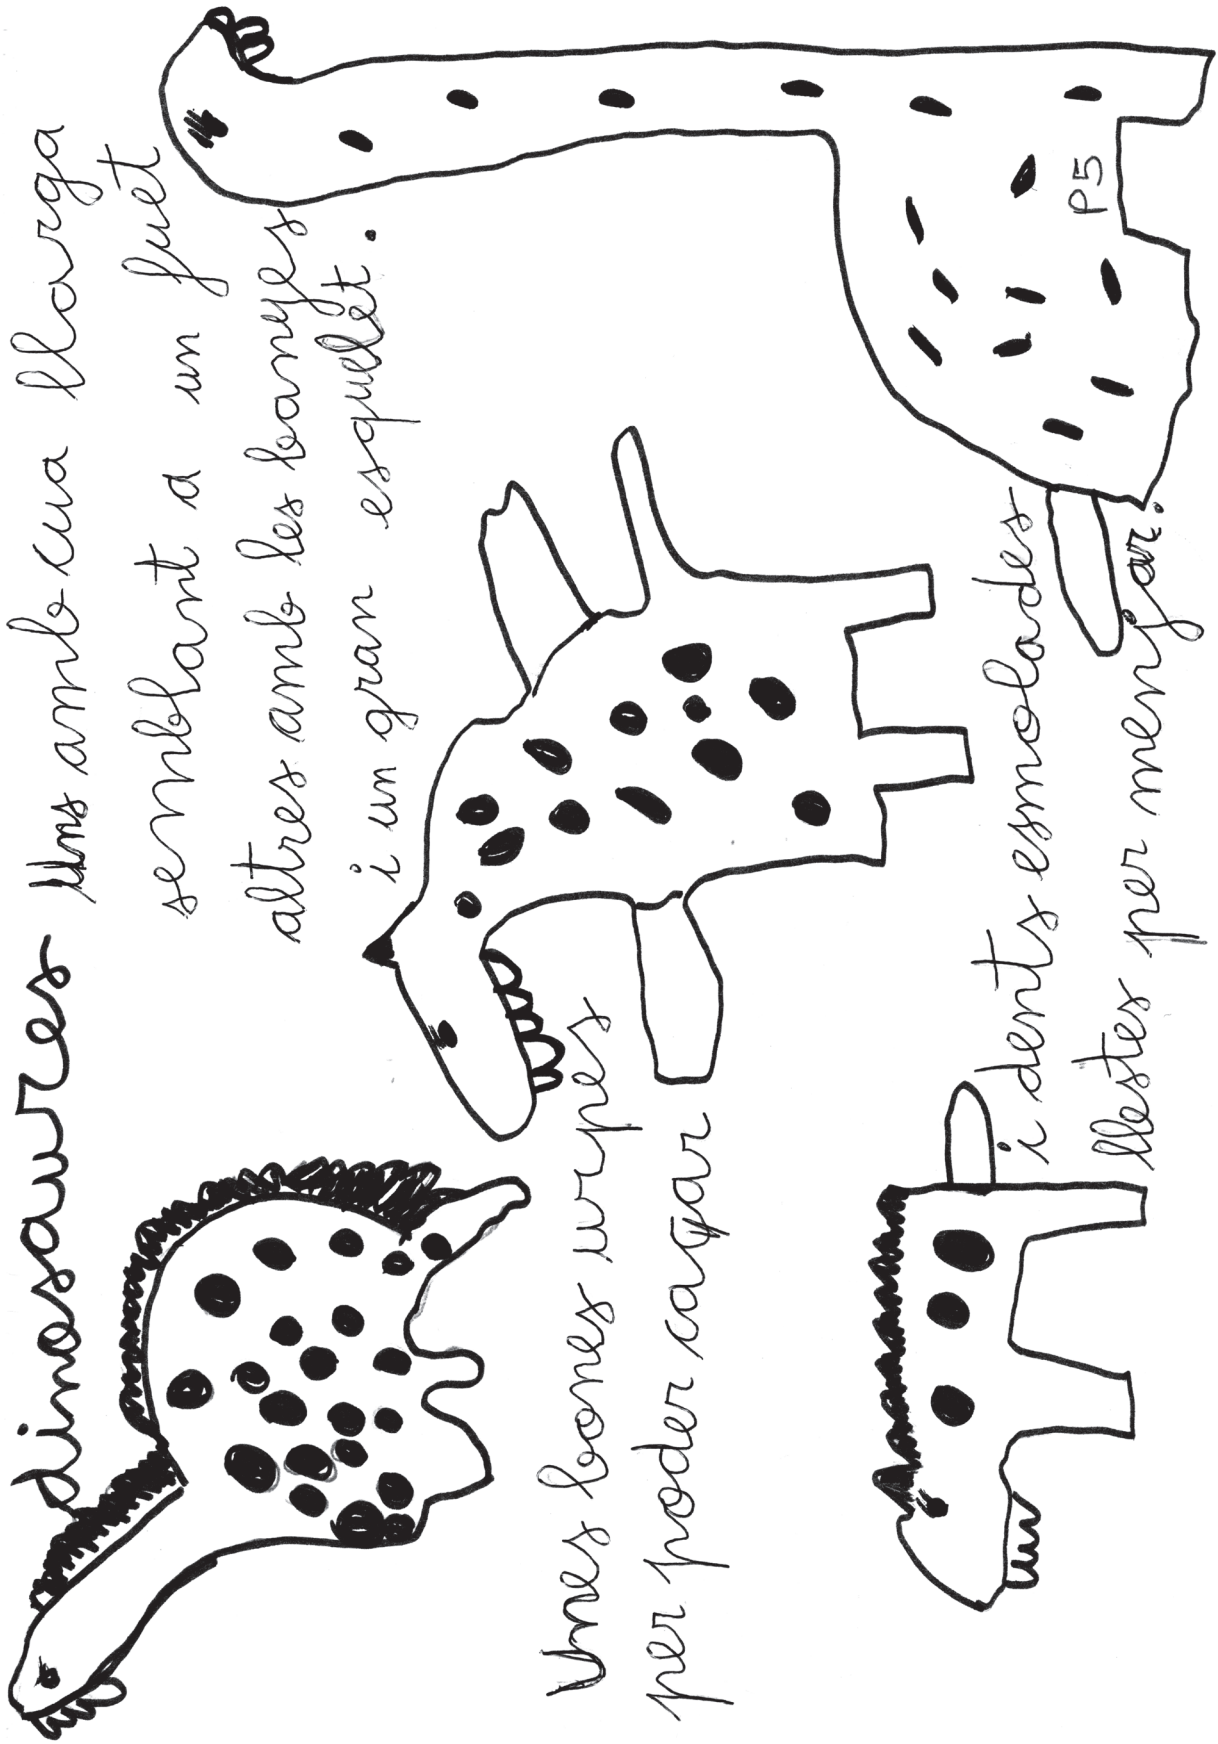 dinosaures
Uns amb cua llarga
semblant a un fuet
altres amb les banyes
i un gran esquelet.
Unes bones urpes
per poder caçar
i dents esmolades
llestes per menjar.
P5